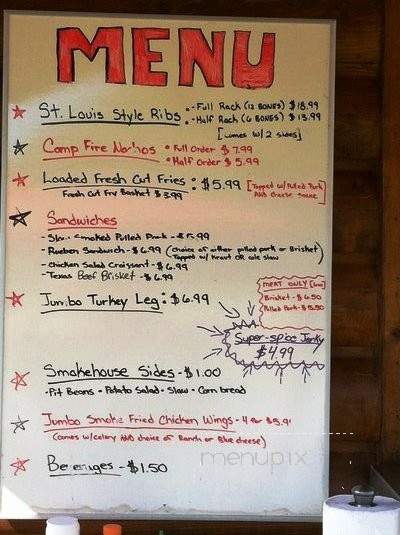 MENU
St. Louis Style Ribs: - Full Rack (12 BONES) $18.99
- Half Rack (6 BONES) $13.99
[comes w/2 sides]
Camp Fire Nachos • Full Order $7.99
• Half Order $5.99
Loaded Fresh Cut Fries: $5.99 [Topped w/ Pulled Pork
AND cheese sauce]
Fresh Cut Fry Basket $3.99
Sandwiches
- Slow Smoked Pulled Pork - $5.99
- Rueben Sandwich - $6.99 (choice of either pulled pork or Brisket)
Topped w/ Kraut OR cole slaw
- Chicken Salad Croissant - $6.99
- Texas Beef Brisket - $6.99
MEAT ONLY
Brisket - $6.50
Pulled Pork - $5.50
Jumbo Turkey Leg: $6.99
Super-spice Jerky
$4.99
Smokehouse Sides - $1.00
- Pit Beans - Potato Salad - Slaw - Corn bread
Jumbo Smoke Fried Chicken Wings - 4 for $5.9
(comes w/celery AND choice of Ranch or Blue cheese)
Beverages - $1.50
menupix